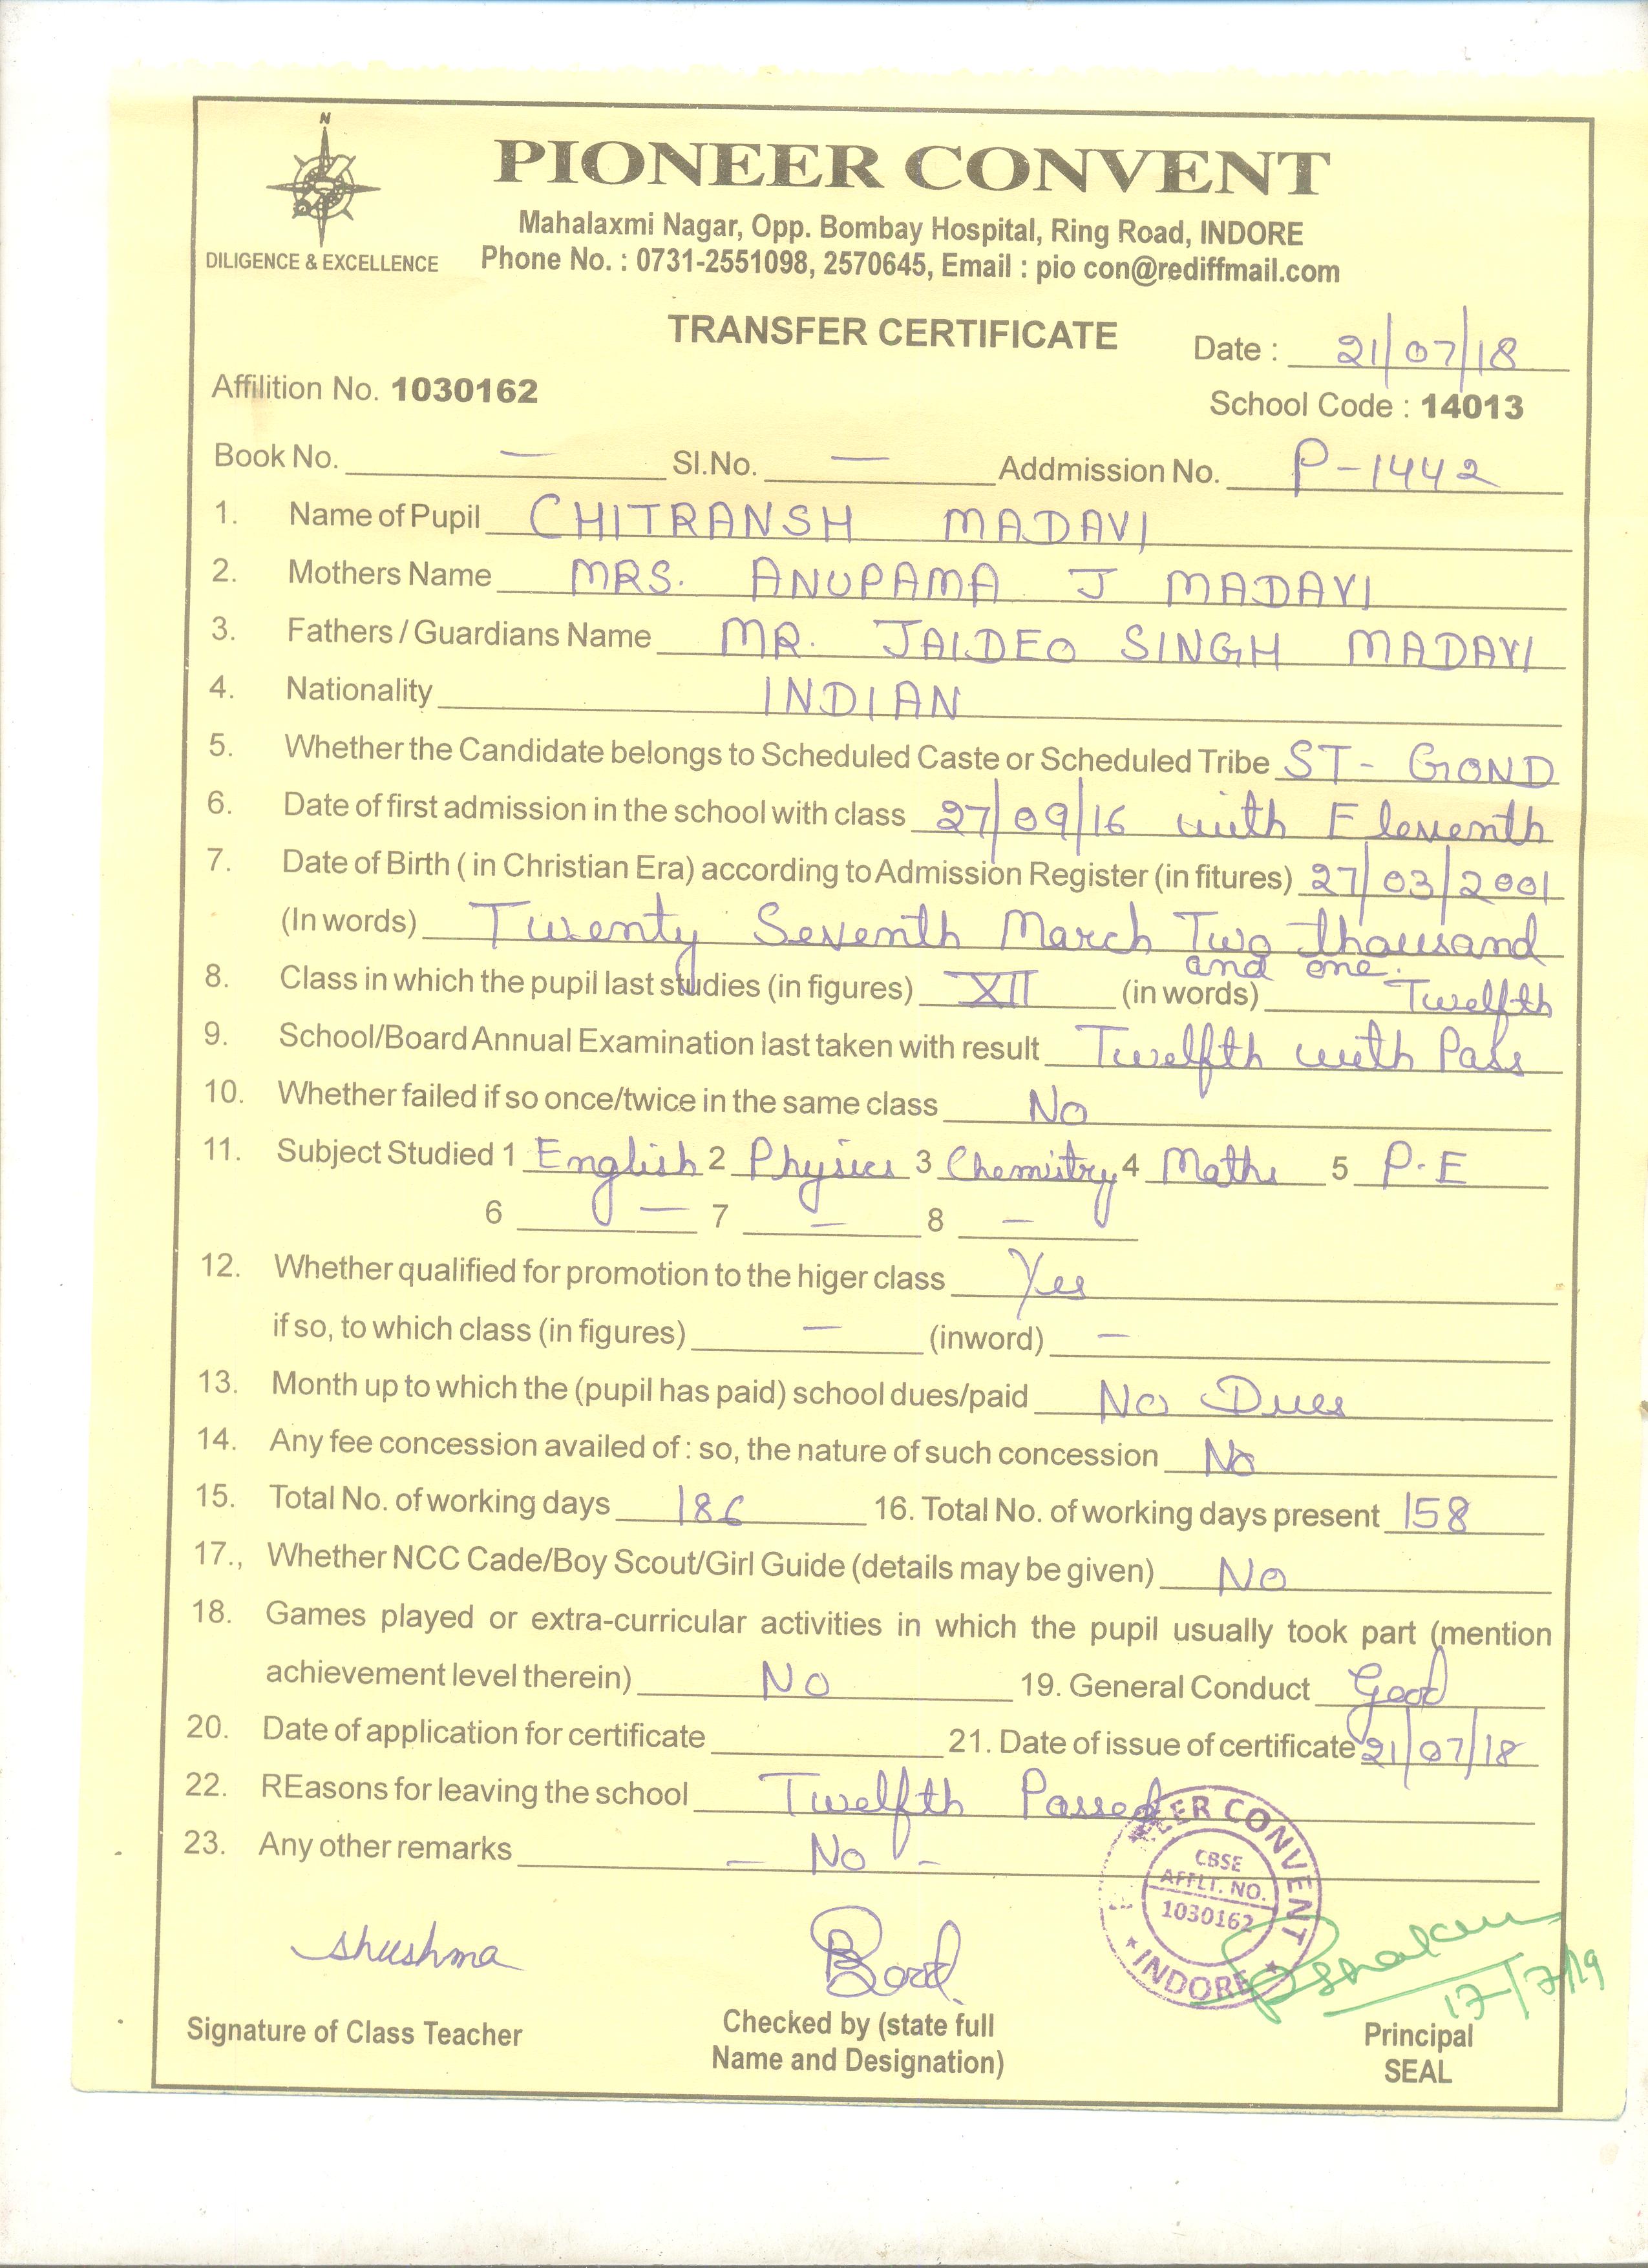 N
PIONEER CONVENT
Mahalaxmi Nagar, Opp. Bombay Hospital, Ring Road, INDORE
DILIGENCE & EXCELLENCE Phone No. : 0731-2551098, 2570645, Email : pio con@rediffmail.com
TRANSFER CERTIFICATE Date : 21/07/18
Affilition No. 1030162 School Code : 14013
Book No. — Sl.No. — Addmission No. P-1442
1. Name of Pupil CHITRANSH MADAVI
2. Mothers Name MRS. ANUPAMA J MADAVI
3. Fathers / Guardians Name MR. JAIDEO SINGH MADAVI
4. Nationality INDIAN
5. Whether the Candidate belongs to Scheduled Caste or Scheduled Tribe ST - GOND
6. Date of first admission in the school with class 27/09/16 with Eleventh
7. Date of Birth ( in Christian Era) according to Admission Register (in fitures) 27/03/2001
(In words) Twenty Seventh March Two thousand
and one.
8. Class in which the pupil last studies (in figures) XII (in words) Twelfth
9. School/Board Annual Examination last taken with result Twelfth with Pass
10. Whether failed if so once/twice in the same class No
11. Subject Studied 1 English 2 Physics 3 Chemistry 4 Maths 5 P.E
6 — 7 — 8 —
12. Whether qualified for promotion to the higer class Yes
if so, to which class (in figures) — (inword) —
13. Month up to which the (pupil has paid) school dues/paid No Dues
14. Any fee concession availed of : so, the nature of such concession No
15. Total No. of working days 186 16. Total No. of working days present 158
17., Whether NCC Cade/Boy Scout/Girl Guide (details may be given) No
18. Games played or extra-curricular activities in which the pupil usually took part (mention
achievement level therein) No 19. General Conduct Good
20. Date of application for certificate 21. Date of issue of certificate 21/07/18
22. REasons for leaving the school Twelfth Passed
23. Any other remarks — No -
CONVENT
CBSE
AFFLT. NO.
1030162
INDORE
shushma
17/7/19
Signature of Class Teacher Checked by (state full Principal
Name and Designation) SEAL